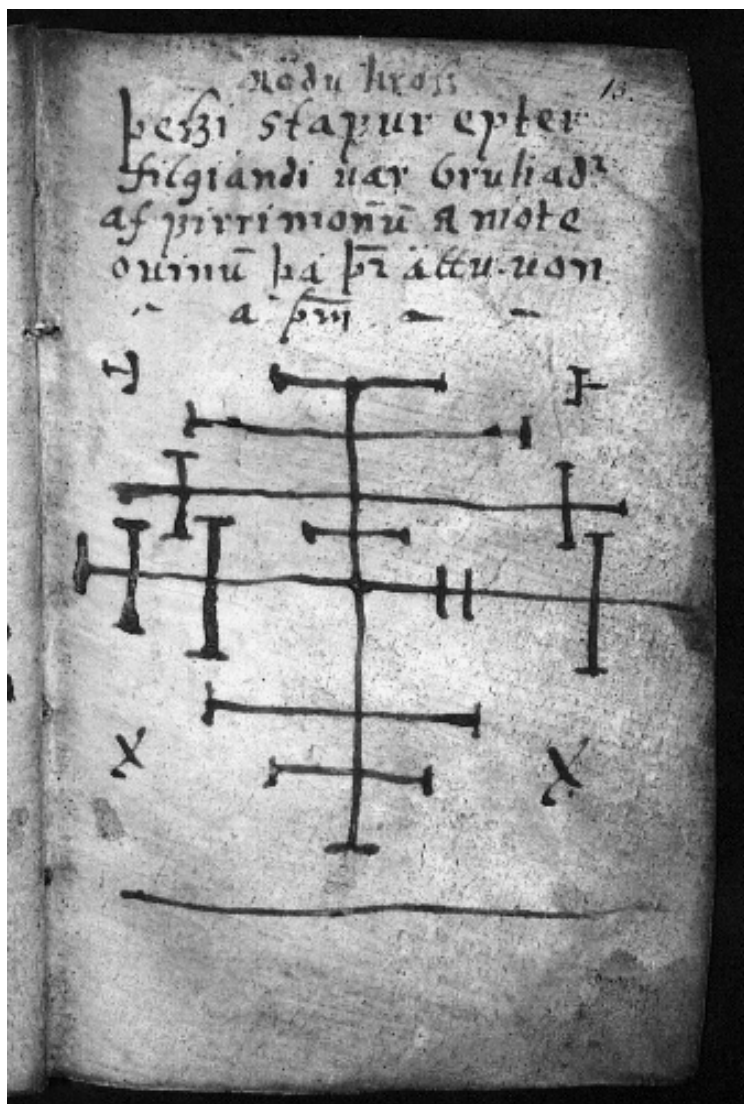 Rödu kross
13.
þesзi stapur epter
filgiandi uar brukadr
af pirrimon̄ū a mote
ouinū þa þr̄ áttu uon
a þm̄
X X